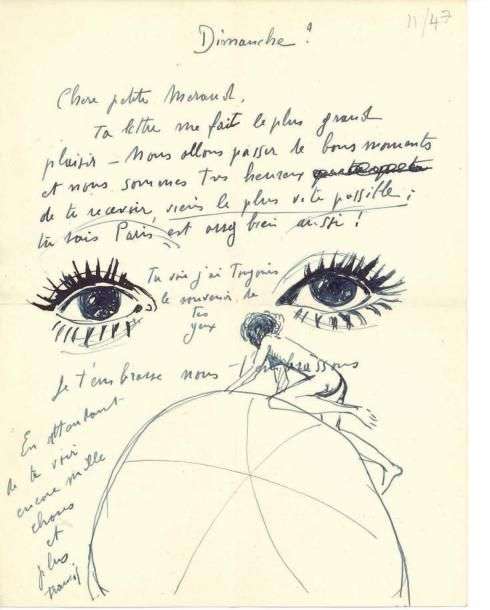 11/47
Dimanche !
Chère petite
Ta lettre me fait le plus grand
plaisir - Nous allons passer de bons moments
et nous sommes très heureux
de te recevoir, viens le plus vite possible ;
tu sais Paris est assez bien aussi !
Tu vois j'ai toujours
le souvenir de
tes
yeux
Je t'embrasse nous - t'embrassons
En attendant
de te voir
encore mille
choses
et
plus